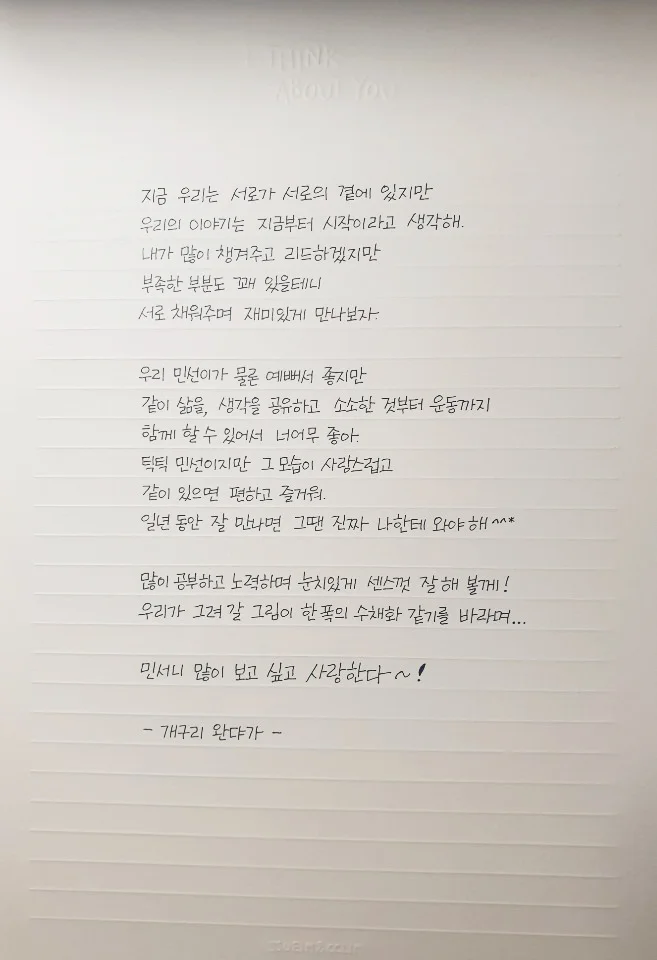 THINK
ABOUT YOU
지금 우리는 서로가 서로의 곁에 있지만
우리의 이야기는 지금부터 시작이라고 생각해.
내가 많이 챙겨주고 리드하겠지만
부족한 부분도 꽤 있을테니
서로 채워주며 재미있게 만나보자.
우리 민선이가 물론 예뻐서 좋지만
같이 삶을, 생각을 공유하고 소소한 것부터 운동까지
함께 할 수 있어서 너어무 좋아.
틱틱 민선이지만 그 모습이 사랑스럽고
같이 있으면 편하고 즐거워.
일년 동안 잘 만나면 그땐 진짜 나한테 와야 해^^*
많이 공부하고 노력하며 눈치있게 센스껏 잘 해 볼게!
우리가 그려 갈 그림이 한 폭의 수채화 같기를 바라며...
민서니 많이 보고 싶고 사랑한다~!
- 개구리 완댜가 -